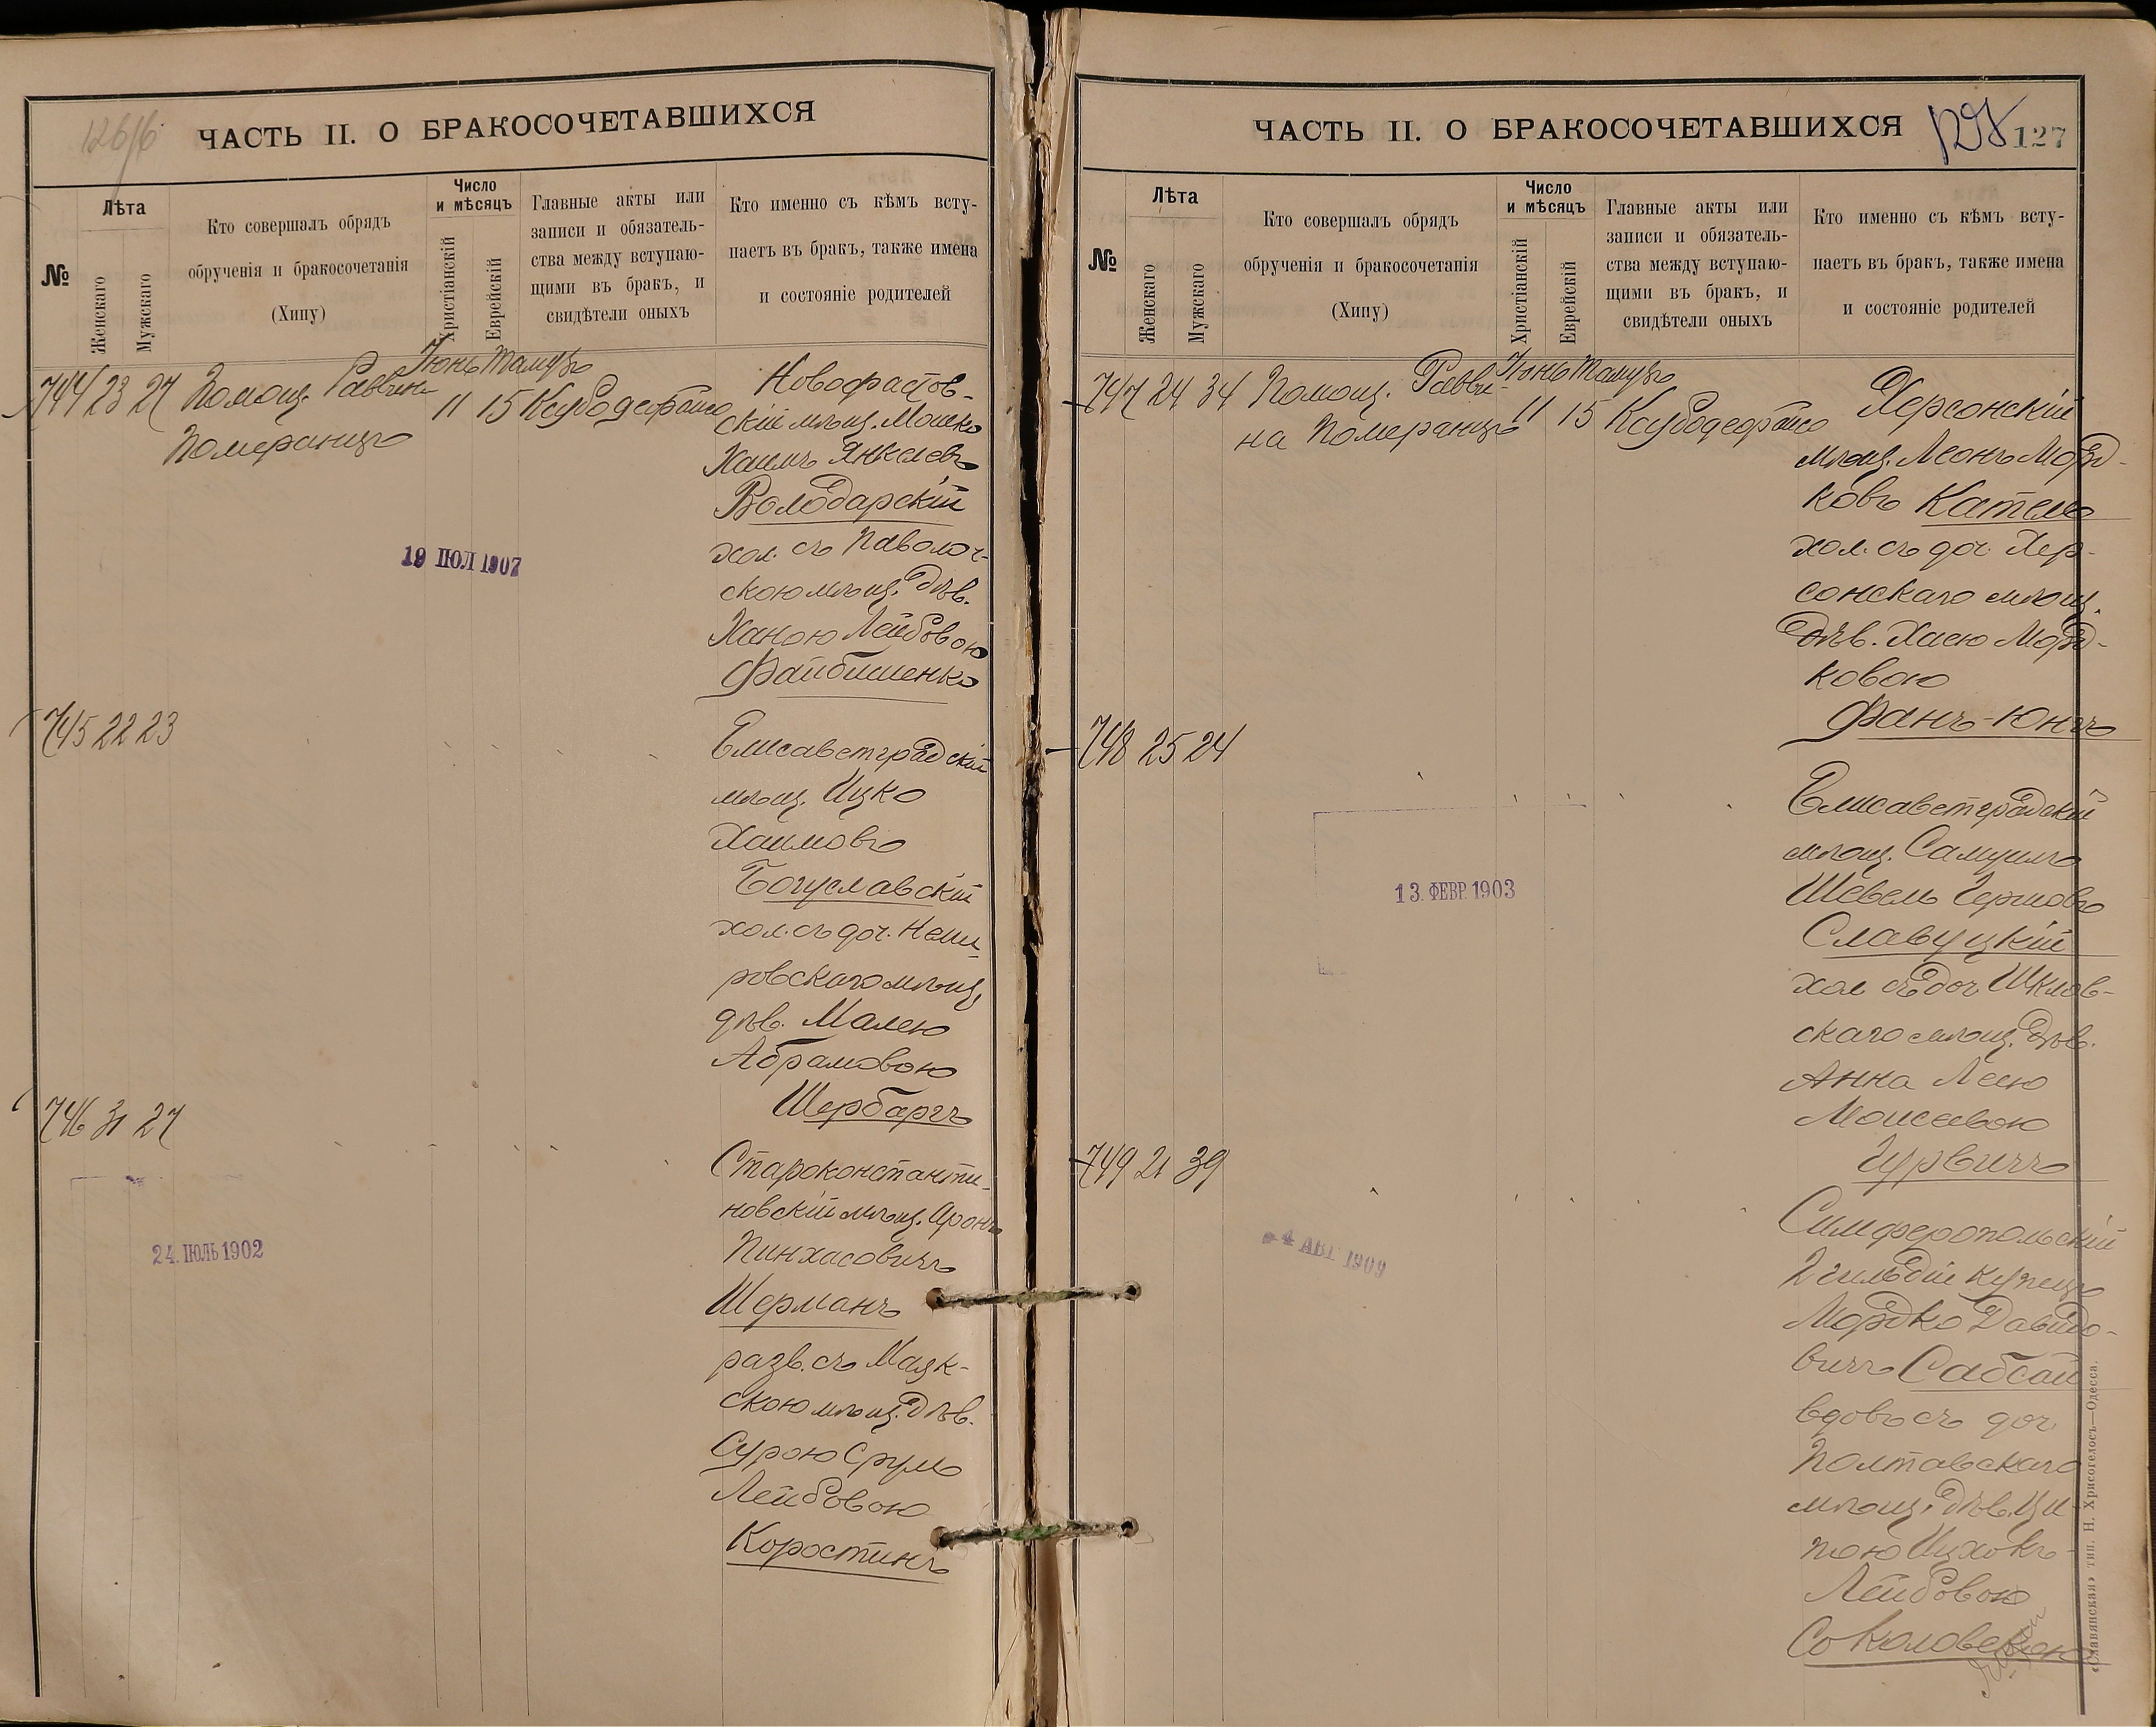 126/б
ЧАСТЬ II. О БРАКОСОЧЕТАВШИХСЯ
№
Лѣта
Женскаго
Мужскаго
Кто совершалъ обрядъ
обрученія и бракосочетанія
(Хипу)
Число
и мѣсяцъ
Христіанскій
Еврейскій
Главные акты или
записи и обязатель-
ства между вступаю-
щими въ бракъ, и
свидѣтели оныхъ
Кто именно съ кѣмъ всту-
паетъ въ бракъ, также имена
и состояніе родителей
744 23 27 Помощ. Раввина
Померанцъ
Іюнь Тамузъ
11 15
Новофастов-
скій мѣщ. Мошко
Хаимъ Янкелевъ
Володарскій
хол. съ Паволоч-
скою мѣщ. дѣв.
Ханою Лейбовою
Файбишенко
19 ІЮЛ 1907
745 22 23
Елисаветградскій
мѣщ. Ицко
Хаимовъ
Богуславскій
хол. съ доч. Неми-
ровскаго мѣщ.
дѣв. Малею
Абрамовою
Шербаргъ
746 31 27
Староконстанти-
новскій мѣщ. Аронъ
Пинхасовичъ
Шерманъ
разв. съ Маяк-
скою мѣщ. дѣв.
Сурою Срулъ
Лейбовою
Коростинъ
24. ІЮЛЬ 1902
127
ЧАСТЬ II. О БРАКОСОЧЕТАВШИХСЯ
№
Лѣта
Женскаго
Мужскаго
Кто совершалъ обрядъ
обрученія и бракосочетанія
(Хипу)
Число
и мѣсяцъ
Христіанскій
Еврейскій
Главные акты или
записи и обязатель-
ства между вступаю-
щими въ бракъ, и
свидѣтели оныхъ
Кто именно съ кѣмъ всту-
паетъ въ бракъ, также имена
и состояніе родителей
747 24 34 Помощ. Равви-
на Померанцъ
Іюнь Тамузъ
11 15
Херсонскій
мѣщ. Леонъ Морд-
ковъ Кател
хол. съ доч. Хер-
сонскаго мѣщ.
дѣв. Хаею Морд-
ковою
Фанъ-Юнгъ
748 25 24
Елисаветградскій
мѣщ. Самуилъ
Шевель Гершовъ
Славуцкій
хол съ доч Шклов-
скаго мѣщ. дѣв.
Анна Леею
Моисеевою
Гурвичъ
13. ФЕВР. 1903
749 21 39
Симферопольскій
2 гильдіи купецъ
Мордко Давидо-
вичъ Сабсай
вдовъ съ доч.
Полтавскаго
мѣщ. дѣв. Ци-
пою Ицховъ-
Лейбовою
Соколовскою
4 АВГ 1909
«Славянская» тип. Н. Хрисогелосъ—Одесса.